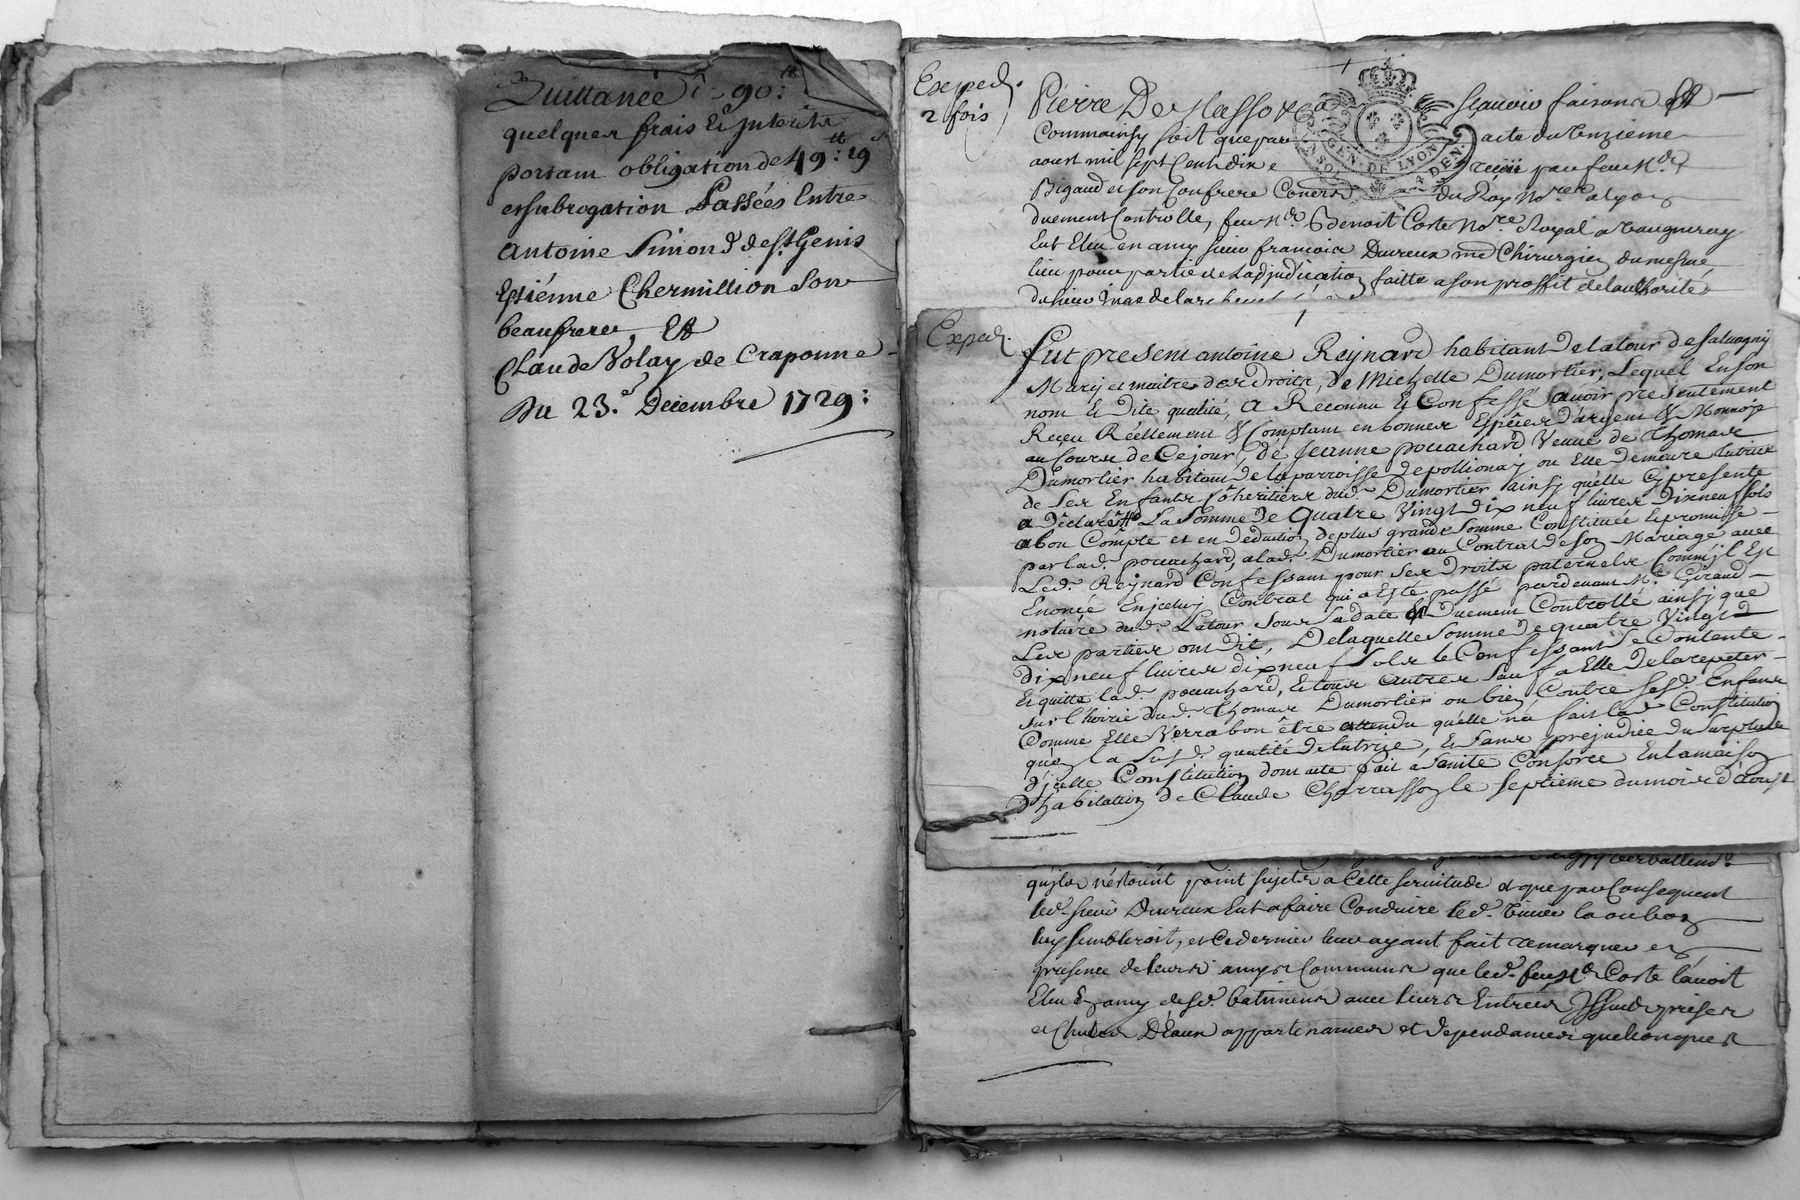 Quittance de 90:tt
quelques frais et Interets
portant obligation de 49:tt 19s
et subrogation Passées Entre
Antoine Simond de St Genis
Estiénne Chermillion Son
beaufrere, Et
Claude Volay de Craponne
Du 23.e Decembre 1729:
Expedé
2 fois
Pierre De
Sçavoir faisons Et
Comm'ainsy soit que par
acte du onzieme
aoust mil sept Cent dix
receu par feu Me
Bigaud et son Confrere Coners
du Roy Nores a Lyon
duement Controllé, feu Me Benoit Coste Nore Royal a Vaugneray
Eut Eleu en amy sieur francois Dureux me Chirurgien du mesme
lieu pour partie de Ladjudication faitte a son proffit de lauthorité
GEN. DE LYON
4 DEN.
Exped.
Fut present antoine Reynard habitant de latour de salvagny
Mary et maitre des droits, de Michelle Dumortier, Lequel En son
nom Et dite qualité, A Reconnu Et Confessé avoir presentement
Reçeu Réellement & Comptant en bonnes Espêces d'argent & Monnoye
au Cours de Ce jour, de Jeanne pouachard Veuve de Thomas
Dumortier habitant de la parroisse de pollionay ou Elle demeure tutrice
de Ses Enfants & heritiers dud. Dumortier ainsy quélle Cy presente
a déclaré La Somme de Quatre Vingt dix neuf livres dix neuf sols
a bon Compte et en déduction de plus grande Somme Constituée Et promise
par lad. pouachard, a lad. Dumortier au Contrat de son Mariage avec
Led. Reynard Confessant pour Ses Droits paternels Comm'Il Est
Enoncé En jceluy Contrat qui a Esté passé pardevant Me Giraud
notaire dud. Latour sous sa date & Duement Controllé ainsy que
Les parties ont dit, De laquelle Somme de quatre Vingt
dix neuf livres dix neuf Sols le Confessant Se Contente
Et quitte lad. pouachard, Et tous autres sauf a Elle de la repeter
sur l'hoirie dud. Thomas Dumortier ou bien Contre Sesd. Enfans
Comme Elle Verra bon être attendu qu'elle n'a fait lad. Constitution
qu'en la Susd. qualité de tutrice, Et sans prejudice du Surplus
d'jcelle Constitution dont acte fait a Sainte Consorce En la maison
d'habitation de Claude Charrasson le septieme du mois d'aoust
quils n'estoint point sujets a Cette servitude et que par Consequent
led. sieur Dureux Eut a faire Conduire led. la ou bon
luy sembleroit, et Ce dernier leur ayant fait remarquer en
presence de leurs amys Communs que led. feu Me Coste l'avoit
Eleu En amy desd. batimens avec leurs Entrées Issues prises
et Chutes D'Eaux appartenances et dependances quelconques